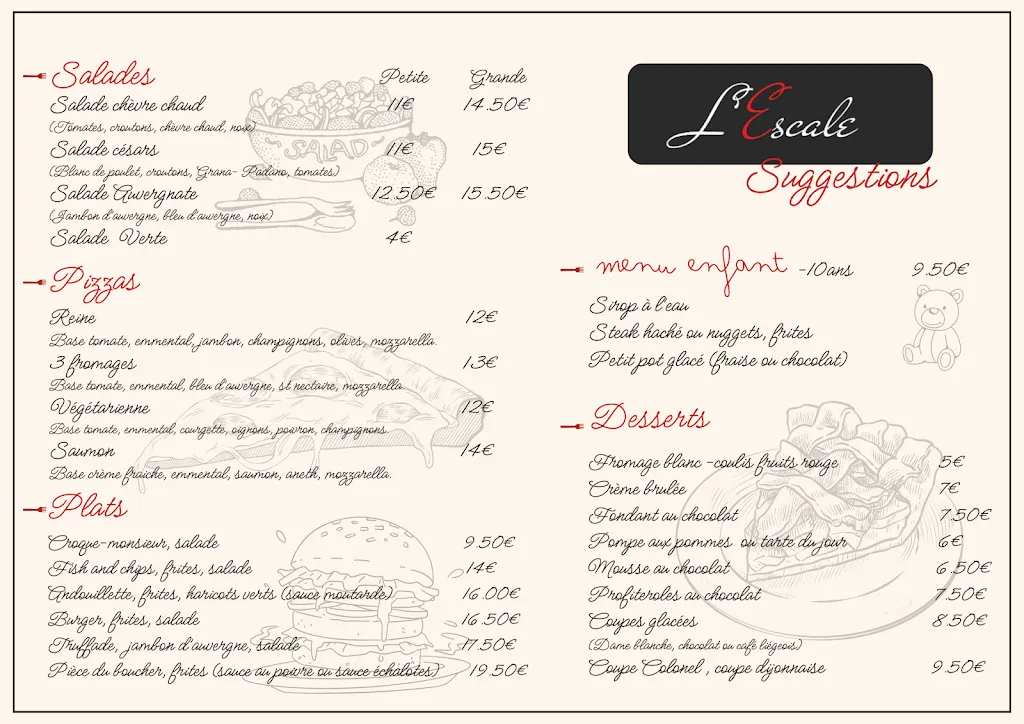 Salades Petite Grande
Salade chèvre chaud 11€ 14.50€
(Tomates, croutons, chèvre chaud, noix)
Salade césars 11€ 15€
(Blanc de poulet, croutons, Grana- Padano, tomates)
Salade Auvergnate 12.50€ 15.50€
(Jambon d'auvergne, bleu d'auvergne, noix)
Salade Verte 4€
SALAD
Pizzas
Reine 12€
Base tomate, emmental, jambon, champignons, olives, mozzarella.
3 fromages 13€
Base tomate, emmental, bleu d'auvergne, st nectaire, mozzarella
Végétarienne 12€
Base tomate, emmental, courgette, oignons, poivron, champignons.
Saumon 14€
Base crème fraiche, emmental, saumon, aneth, mozzarella.
Plats
Croque-monsieur, salade 9.50€
Fish and chips, frites, salade 14€
Andouillette, frites, haricots verts (sauce moutarde) 16.00€
Burger, frites, salade 16.50€
Truffade, jambon d'auvergne, salade 17.50€
Pièce du boucher, frites (sauce au poivre ou sauce échalotes) 19.50€
L'Escale
Suggestions
menu enfant -10ans 9.50€
Sirop à l'eau
Steak haché ou nuggets, frites
Petit pot glacé (fraise ou chocolat)
Desserts
Fromage blanc -coulis fruits rouge 5€
Crème brulée 7€
Fondant au chocolat 7.50€
Pompe aux pommes ou tarte du jour 6€
Mousse au chocolat 6.50€
Profiteroles au chocolat 7.50€
Coupes glacées 8.50€
(Dame blanche, chocolat ou café liégeois)
Coupe Colonel , coupe dijonnaise 9.50€